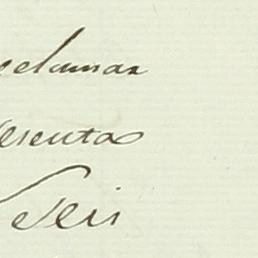 eclamar
esenta
Seis